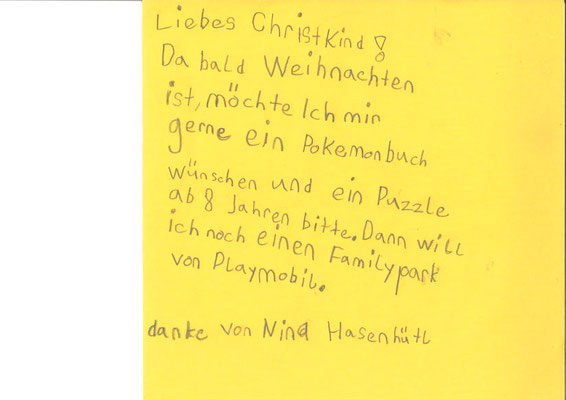 Liebes Christkind!
Da bald Weihnachten
ist, möchte Ich mir
gerne ein Pokemonbuch
wünschen und ein Puzzle
ab 8 Jahren bitte. Dann will
ich noch einen Familypark
von Playmobil.
danke von Nina Hasenhütl